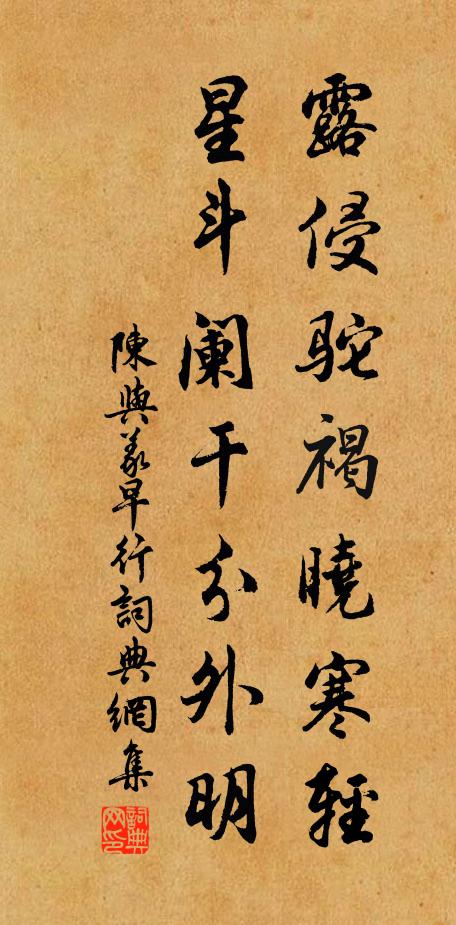 露侵駝褐曉寒輕
星斗闌干分外明
陳與義早行詞典網集
詞典网印